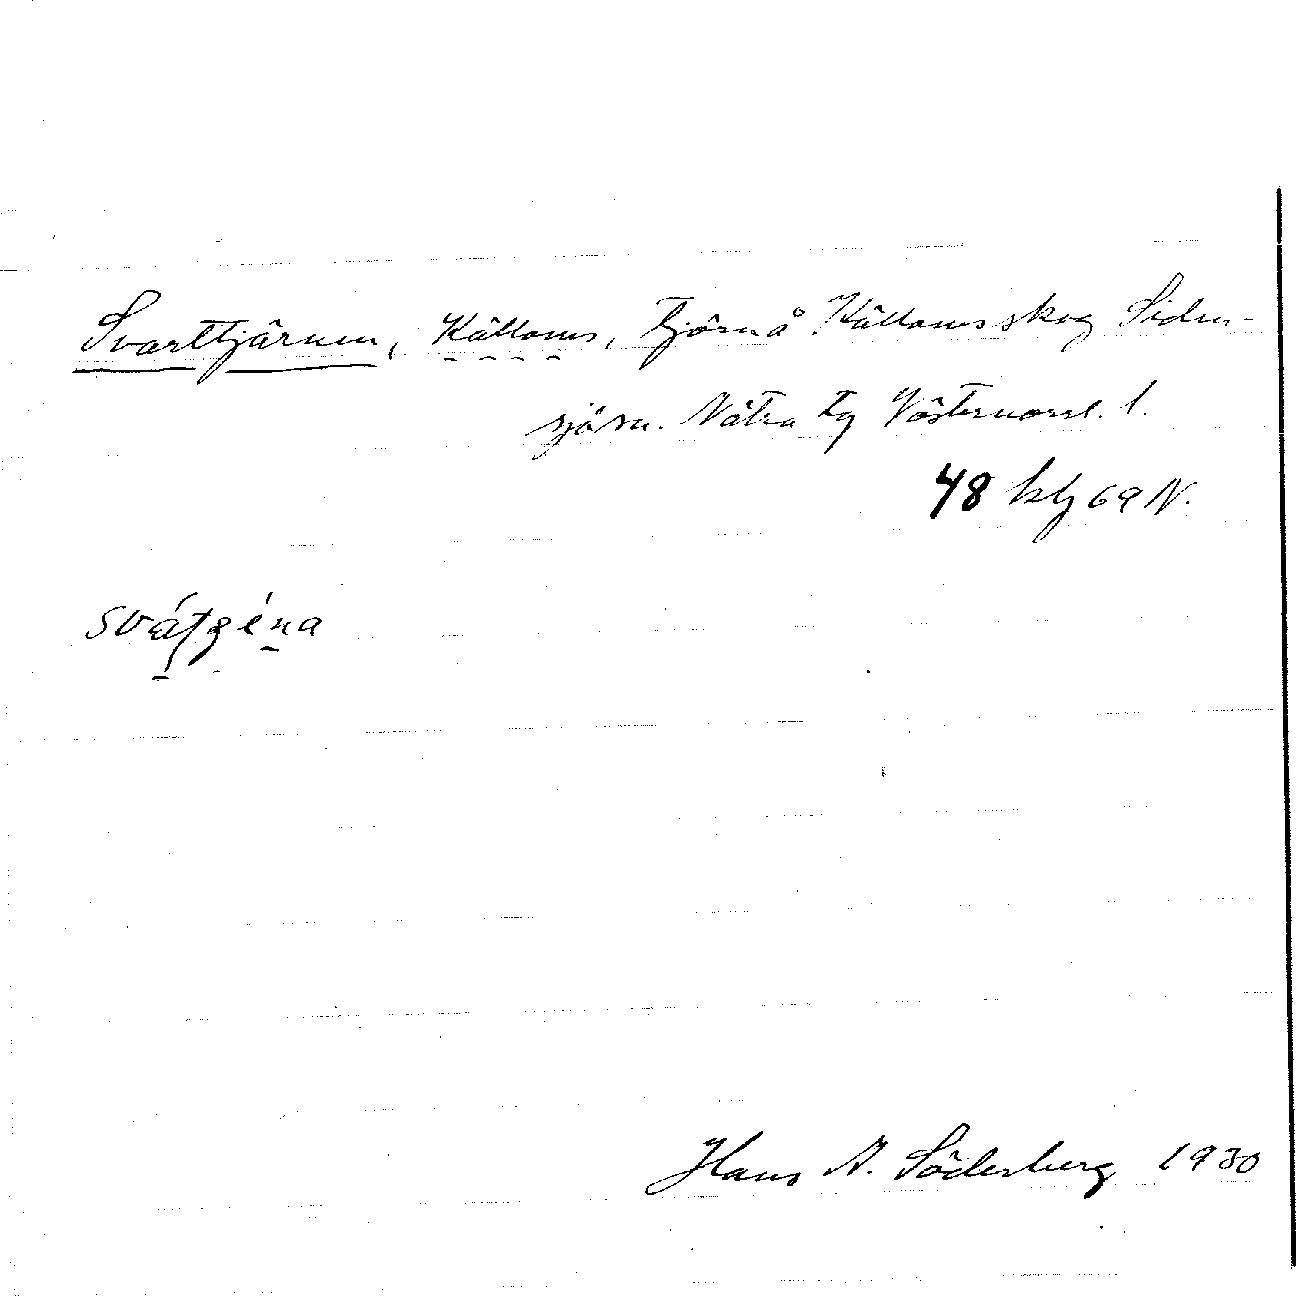 Svarttjärnen, Källoms, tjärn å Källomsskog Siden-
sjösn. Nätra tg Västernorrl. l.
48 blg 69 N.
sváʈgéna
Hans A. Söderberg 1930